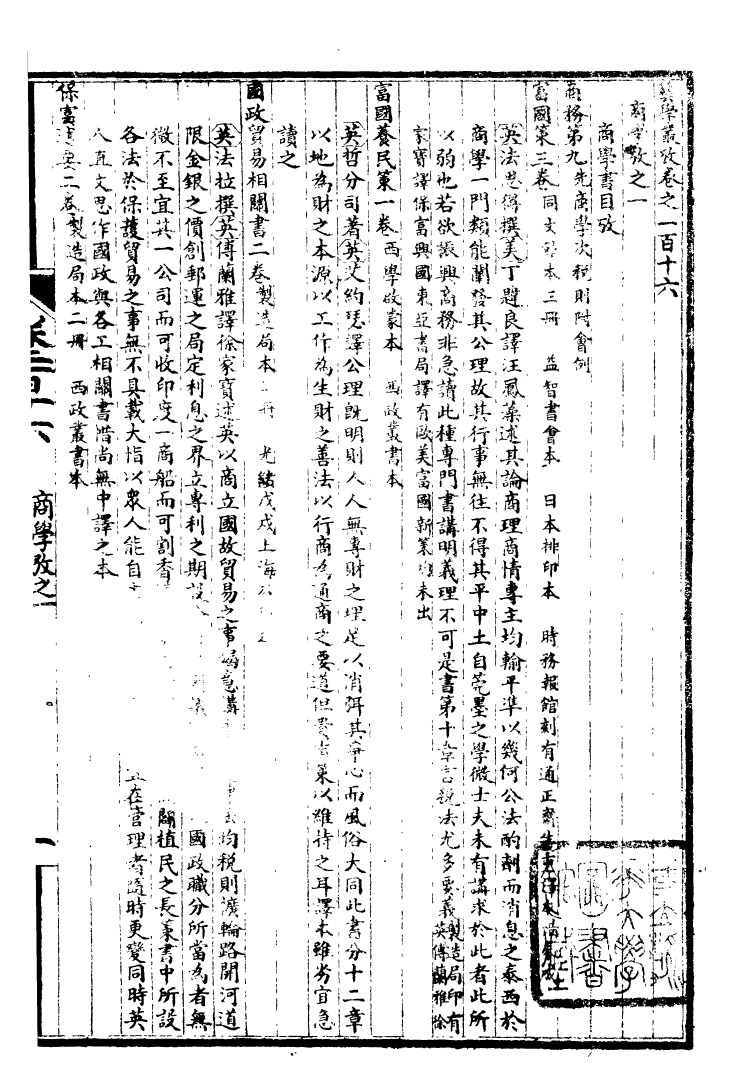 學叢攷卷之一百十六
商學攷之一
商學書目攷
商務第九先商學次稅則附會例
富國策三卷同文館本三冊 益智書會本 日本排印本 時務報館刻有通正齋生重譯本
英法思得撰美丁韙良譯汪鳳藻述其論商理商情專主均輸平準以幾何公法酌劑而消息之泰西於
商學一門類能闡發其公理故其行事無往不得其平中土自莞墨之學微士夫未有講求於此者此所
以弱也若欲振興商務非急讀此種專門書講明義理不可是書第十章言稅法尤多要義製造局印有英傅蘭雅徐
家寶譯保富興國東亞書局譯有歐美富國新策 未出
富國養民策一卷 西學啟蒙本 西政叢書本
英哲分司著英艾約瑟譯公理既明則人人無專財之理足以消弭其爭心而風俗大同此書分十二章
以地為財之本源以工作為生財之善法以行商為通商之要道但貴 策以維持之耳譯本雖劣宜急
讀之
國政貿易相關書二卷製造局本 冊 光緒戊戌上海
英法拉撰英傅蘭雅譯徐家寶述英以商立國故貿易之事 意講 均稅則擴輪路開河道
限金銀之價創郵運之局定利息之界立專利之期設 國政職分所當為者無
微不至宜其一公司而可收印度一商船而可割香 闢植民之長策書中所設
各法於保護貿易之事無不具載大指以眾人能自 在管理者隨時更變同時英
人直文思作國政與各工相關書惜尚無中譯之本
保富 要二卷製造局本二冊 西政叢書本
卷一百十六
商學攷之一
一